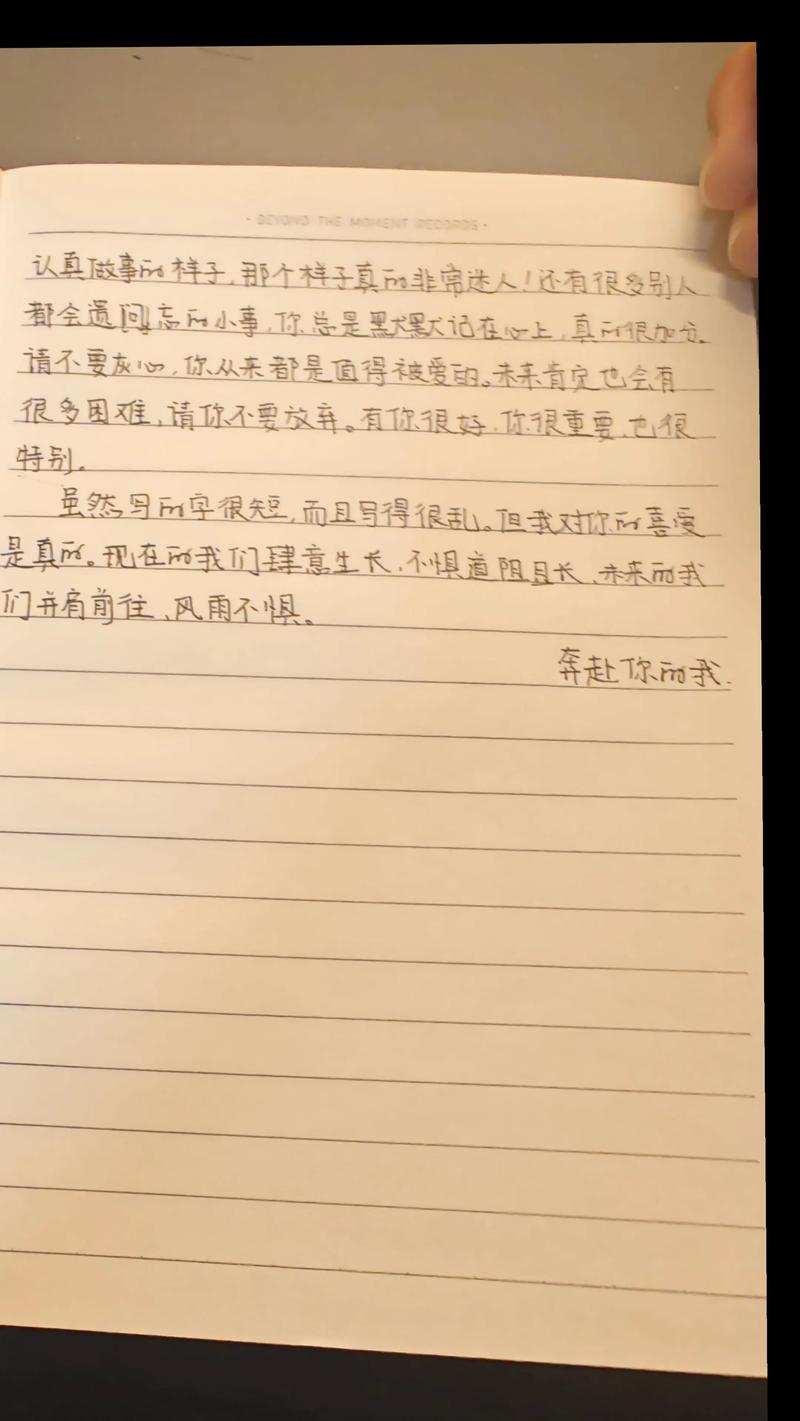 · BEYOND THE MOMENT RECORDS ·
认真做事的样子,那个样子真的非常迷人!还有很多别人
都会遗忘的小事,你总是默默记在心上,真的很加分。
请不要灰心,你从来都是值得被爱的。未来肯定也会有
很多困难,请你不要放弃。有你很好,你很重要,也很
特别。
虽然写的字很短,而且写得很乱。但我对你的喜爱
是真的。现在的我们肆意生长,不惧道阻且长,未来的我
们并肩前往、风雨不惧。
奔赴你的我.